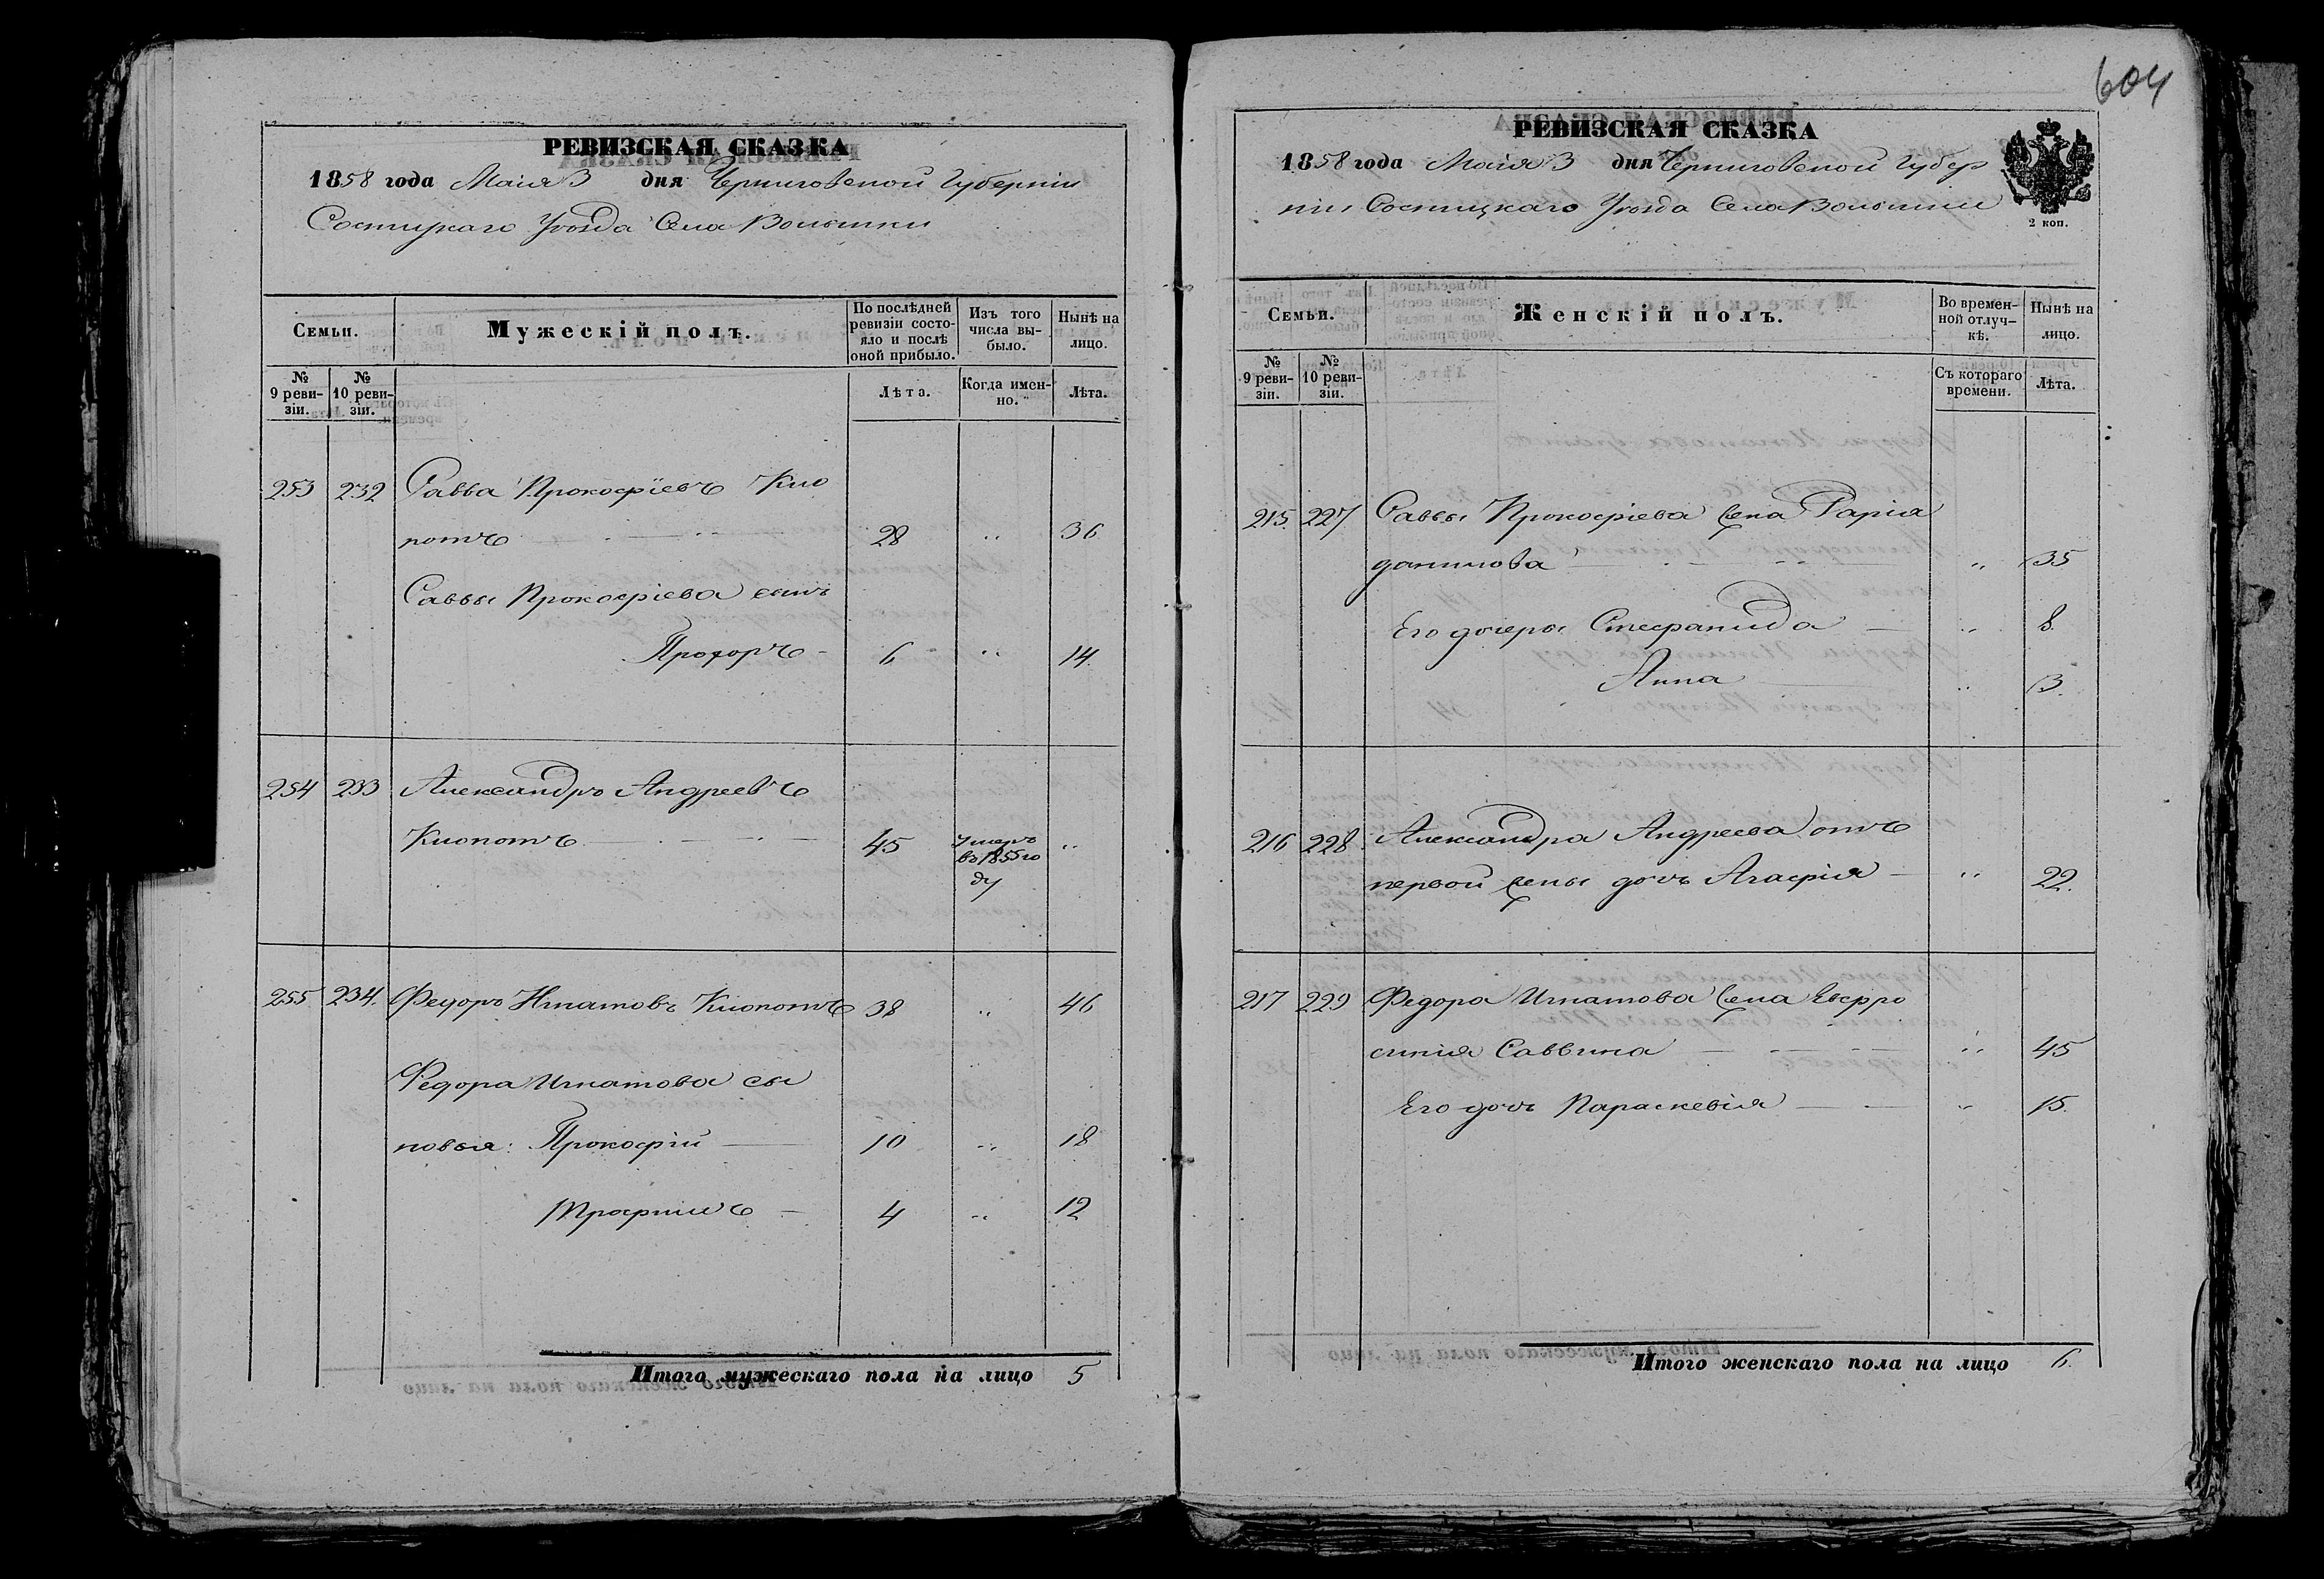 604
РЕВИЗСКАЯ СКАЗКА
1858 года Маія 3 дня Черниговской Губерніи
Сосницкаго Уѣзда Села Волынки
Семьи.
Мужескій полъ.
По послѣдней ревизіи состояло и послѣ оной прибыло.
Изъ того числа выбыло.
Нынѣ на лицо.
№ 9 ревизіи.
№ 10 ревизіи.
Лѣта.
Когда именно.
Лѣта.
253 232 Савва Прокофіевъ Кло
потъ 28 „ 36
Саввы Прокофіева сынъ
Прохоръ 6 „ 14.
254 233 Александръ Андреевъ
Клопотъ 45 Умеръ „
въ 1855 го
ду
255 234. Федоръ Игнатовъ Клопотъ 38 „ 46
Федора Игнатова сы
новья: Прокофій 10 „ 18
Трофимъ 4 „ 12
Итого мужескаго пола на лицо 5
РЕВИЗСКАЯ СКАЗКА
1858 года Маія 3 дня Черниговской Губер
ніи Сосницкаго Уѣзда Села Волынки
2 коп.
Семьи.
Женскій полъ.
Во временной отлучкѣ.
Нынѣ на лицо.
№ 9 ревизіи.
№ 10 ревизіи.
Съ котораго времени.
Лѣта.
215. 227. Саввы Прокофіева жена Дарія
данилова „ 35
Его дочери Стефанида „ 8.
Анна „ 3.
216 228. Александра Андреева отъ
первой жены дочь Агафія „ 22.
217 229 Федора Игнатова жена Евфро
синія Саввина „ 45
Его дочь Параскевія „ 15.
Итого женскаго пола на лицо 6.